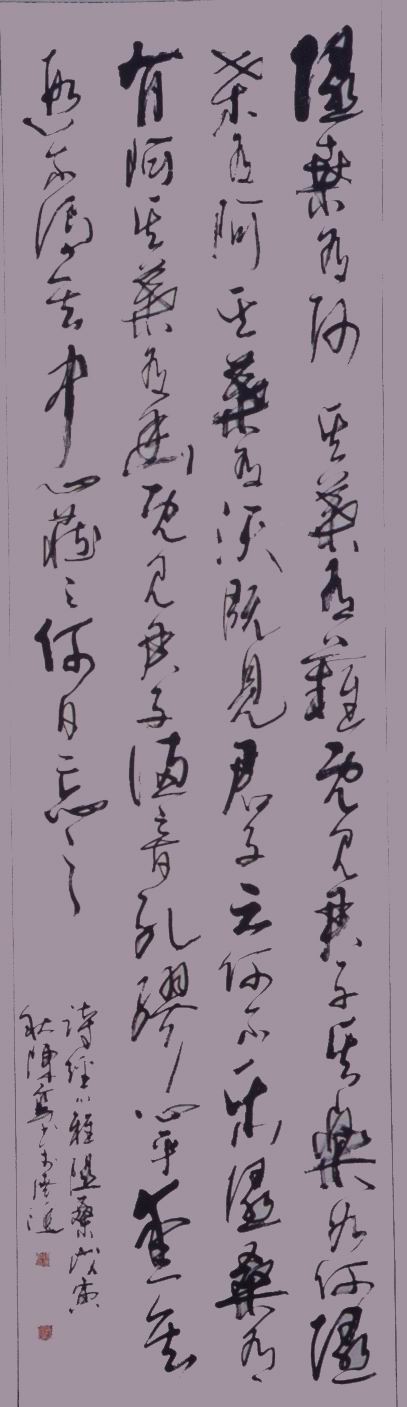 隰桑有阿其葉有難既見君子其樂如何隰
桑有阿其葉有沃既見君子云何不樂隰桑有
有阿其葉有幽既見君子德音孔膠心乎愛矣
遐不謂矣中心藏之何日忘之
詩經小雅隰桑戊寅
秋陳